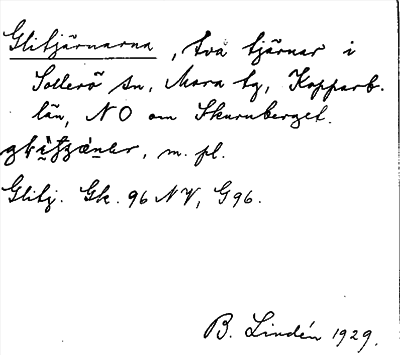 Glitjärnarna, två tjärnar i
Sollerö sn, Mora tg, Kopparb.
län, NO om Skurnberget.
, m. pl.
Glitj. Gk. 96 NV, G96.
B. Lindén 1929.